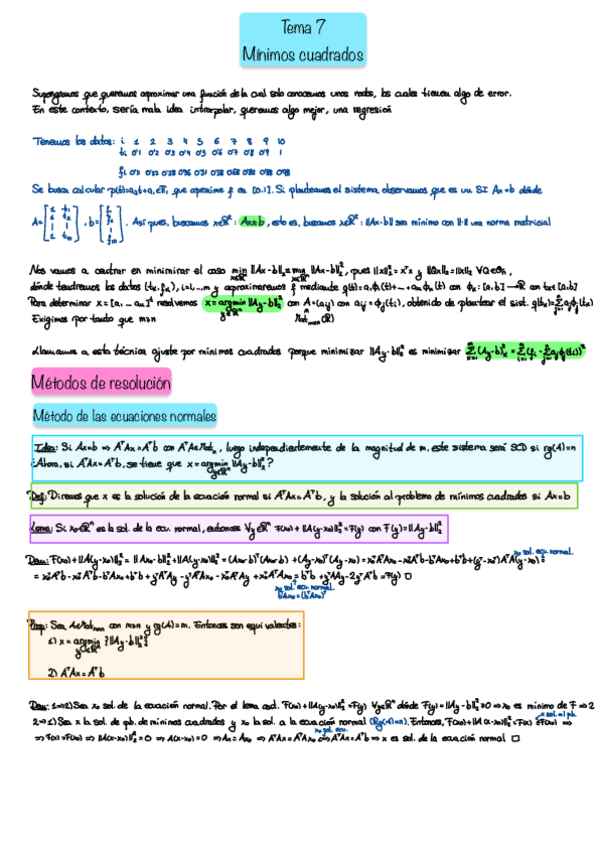 Tema 7
Mínimos cuadrados
Supongamos que queremos aproximar una función de la cual solo conocemos unos nodos, los cuales tienen algo de error.
En este contexto, sería mala idea interpolar, queremos algo mejor, una regresión
Tenemos los datos: i 1 2 3 4 5 6 7 8 9 10
ti 0'1 0'2 0'3 0'4 0'5 0'6 0'7 0'8 0'9 1
Se busca calcular que aproxime f en [0,1]. Si planteamos el sistema observamos que es un SI Ax=b donde
A= , b= . Así pues, buscamos x∈ℝ² : Ax≈b, esto es, buscamos x∈ℝ² : ||Ax-b|| sea mínimo con ||·|| una norma matricial
Nos vamos a centrar en minimizar el caso min ||Ax-b||₂ = min ||Ax-b||₂², pues ||x||₂²=xᵀx y ||Qx||₂=||x||₂ ∀Q∈
donde tendremos los datos (ti,fi), i=1,...,m y aproximaremos f mediante
Para determinar x=[a₁...aₙ]ᵀ resolvemos x=argmin ||Ay-b||₂² con A=(aij) con aij=ϕj(ti), obtenido de plantear el sist.
Exigimos por tanto que m≥n
Llamamos a esta técnica ajuste por mínimos cuadrados porque minimizar ||Ay-b||₂² es minimizar
Métodos de resolución
Método de las ecuaciones normales
Idea: Si Ax=b ⇒ AᵀAx=Aᵀb con AᵀA∈Matₙ, luego independientemente de la magnitud de m, este sistema será SCD si rg(A)=n
¿Ahora, si AᵀAx=Aᵀb, se tiene que x=argmin ||Ay-b||₂²?
Def: Diremos que x es la solución de la ecuación normal si AᵀAx=Aᵀb, y la solución al problema de mínimos cuadrados si Ax≈b
Lema: Si x₀∈ℝⁿ es la sol. de la ecu. normal, entonces ∀y∈ℝⁿ F(x₀)+||A(y-x₀)||₂²=F(y) con F(y)=||Ay-b||₂²
x₀ sol. ecu. normal.
Dem: F(x₀)+||A(y-x₀)||₂² = ||Ax₀-b||₂²+||A(y-x₀)||₂² = (Ax₀-b)ᵀ(Ax₀-b)+(Ay-x₀)ᵀ(Ay-x₀)
=F(y) □
x₀ sol. ecu. normal.
bᵀAx₀=(bᵀAx₀)ᵀ
Prop: Sea A∈Matₘₓₙ con m≥n y rg(A)=n. Entonces son equivalentes:
1) x=argmin {||Ay-b||₂²}
2) AᵀAx=Aᵀb
Dem: 1⇒2) Sea x₀ sol. de la ecuación normal. Por el lema ant. F(x₀)+||A(y-x₀)||₂²=F(y) ∀y∈ℝⁿ donde F(y)=||Ay-b||₂²≥0 ⇒ x₀ es mínimo de F ⇒ 2
2⇒1) Sea x la sol. de pb. de mínimos cuadrados y x₀ la sol. a la ecuación normal (Rg(A)=n). Entonces, F(x₀)+||A(x-x₀)||₂²=F(x) ≤F(x₀) ⇒
x sol. al pb.
⇒ F(x)=F(x₀) ⇒ ||A(x-x₀)||₂²=0 ⇒ A(x-x₀)=0 ⇒ Ax=Ax₀ ⇒ AᵀAx=AᵀAx₀ ⇒ AᵀAx=Aᵀb ⇒ x es sol. de la ecuación normal □
x₀ sol. ecu.